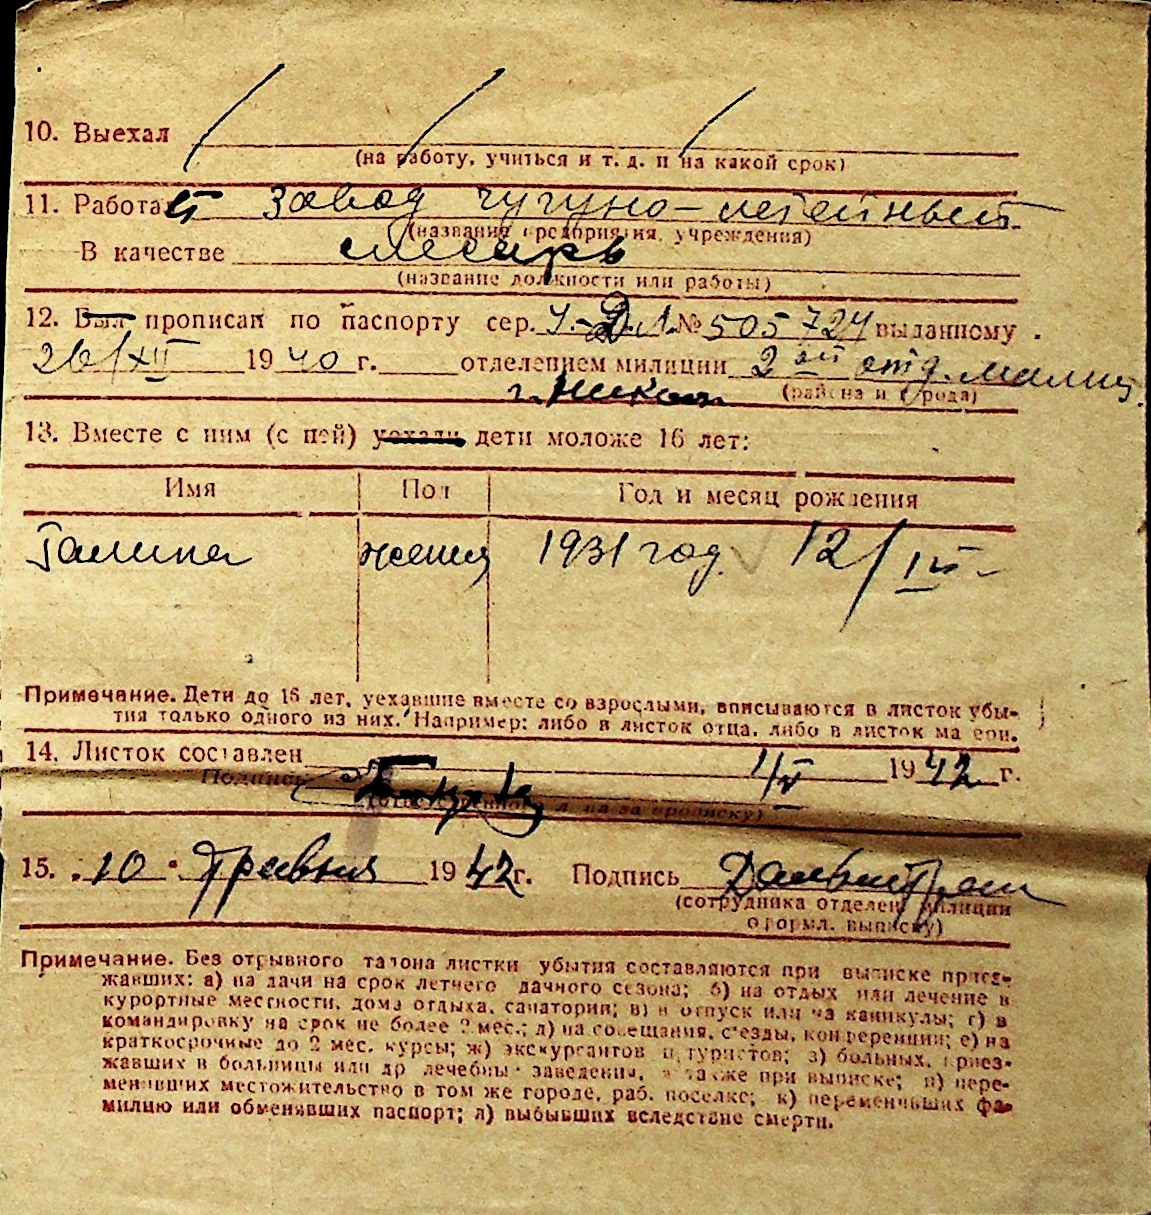 10. Выехал
(на работу, учиться и т. д. и на какой срок)
11. Работает завод чугуно-литейный
(название предприятия, учреждения)
В качестве слесарь
(название должности или работы)
12. Был прописан по паспорту сер. № 505724 выданному
26/XII 1940 г. отделением милиции 2 отд. милиц.
г. (района и города)
13. Вместе с ним (с ней) уехали дети моложе 16 лет:
Имя Пол Год и месяц рождения
Галина женщ 1931 год. 12/III-
Примечание. Дети до 16 лет, уехавшие вместе со взрослыми, вписываются в листок убы-
тия только одного из них. Например: либо в листок отца, либо в листок матери.
14. Листок составлен 1/V 1942 г.
Подпись
(ответственного лица за прописку)
15. "10" Травня 1942 г. Подпись
(сотрудника отделен. милиции
оформл. выписку)
Примечание. Без отрывного талона листки убытия составляются при выписке приез-
жавших: а) на дачи на срок летнего дачного сезона; б) на отдых или лечение в
курортные местности, дома отдыха, санатории; в) в отпуск или на каникулы; г) в
командировку на срок не более 2 мес.; д) на совещания, с'езды, конференции; е) на
краткосрочные до 2 мес. курсы; ж) экскурсантов и туристов; з) больных, приез-
жавших в больницы или др лечебны заведения, а также при выписке; и) пере-
менивших местожительство в том же городе, раб. поселке; к) переменивших фа-
милию или обменявших паспорт; л) выбывших вследствие смерти.